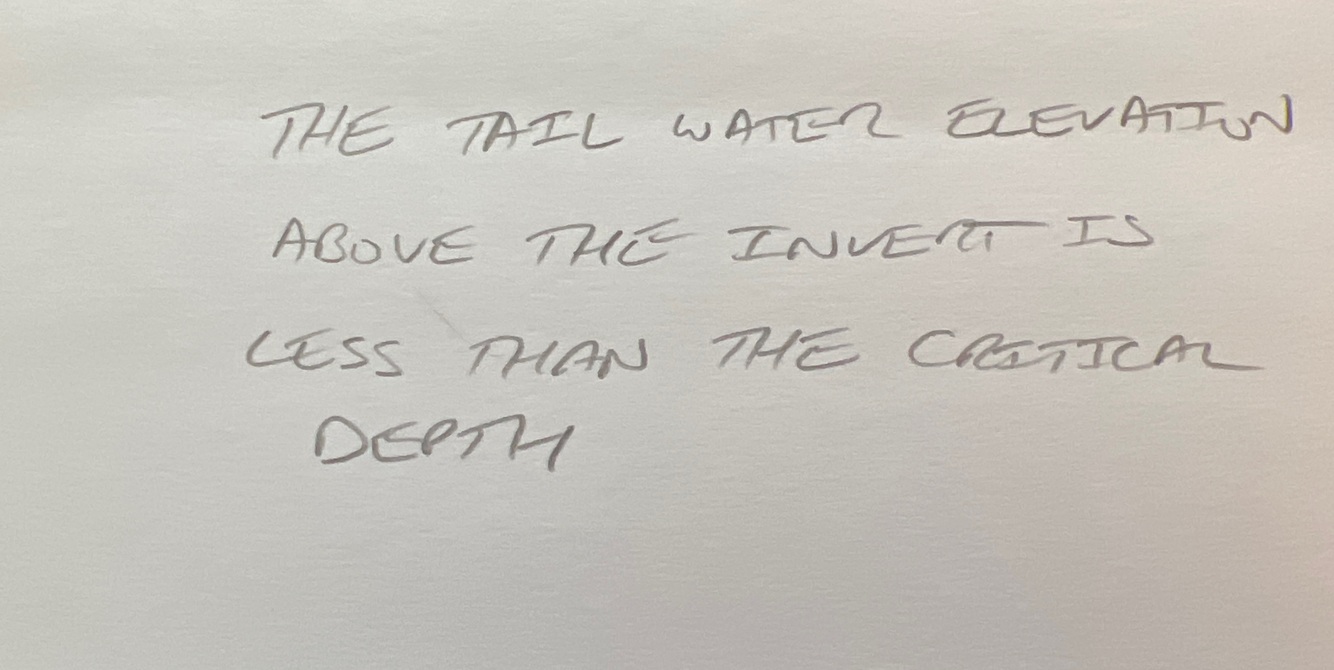 THE TAIL WATER ELEVATION
ABOVE THE INVERT IS
LESS THAN THE CRITICAL
DEPTH